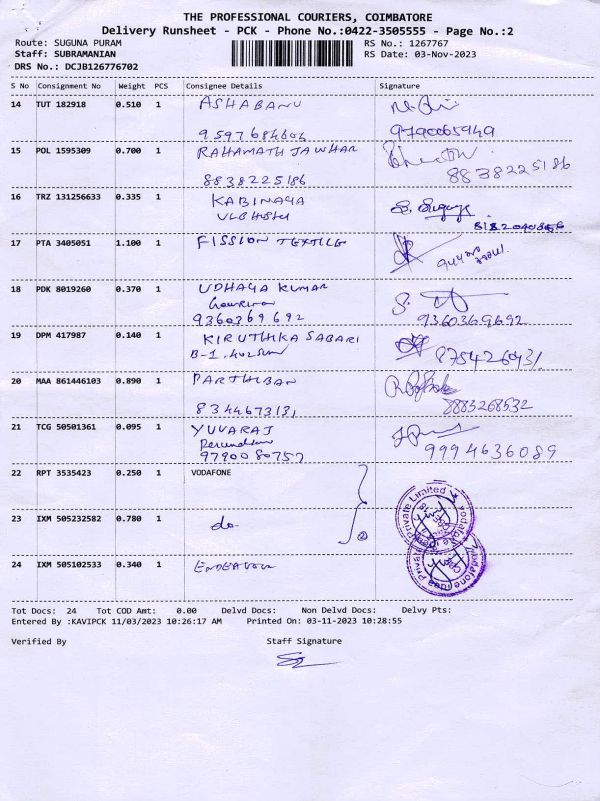 THE PROFESSIONAL COURIERS, COIMBATORE
Delivery Runsheet - PCK - Phone No.:0422-3505555 - Page No.:2
Route: SUGUNA PURAM RS No.: 1267767
Staff: SUBRAMANIAN RS Date: 03-Nov-2023
DRS No.: DCJB126776702
S No Consignment No Weight PCS Consignee Details Signature
14 TUT 182918 0.510 1 ASHABANU
9597684606 9790065949
15 POL 1595309 0.700 1 RAHAMATH JAWHAR
8838225186 8838225186
16 TRZ 131256633 0.335 1 KABINAYA
17 PTA 3405051 1.100 1 FISSION TEXTILE
18 PDK 8019260 0.370 1 UDHAYA KUMAR
9360369692 9360369692
19 DPM 417987 0.140 1 KIRUTHIKA SABARI
B-1, 402
20 MAA 861446103 0.890 1 PARTHIBAN
8344673131 8883268532
21 TCG 50501361 0.095 1 YUVARAJ
9790080757 9994636089
22 RPT 3535423 0.250 1 VODAFONE
23 IXM 505232582 0.780 1 do
24 IXM 505102533 0.340 1 ENDEAVOUR
Tot Docs: 24 Tot COD Amt: 0.00 Delvd Docs: Non Delvd Docs: Delvy Pts:
Entered By :KAVIPCK 11/03/2023 10:26:17 AM Printed On: 03-11-2023 10:28:55
Verified By Staff Signature